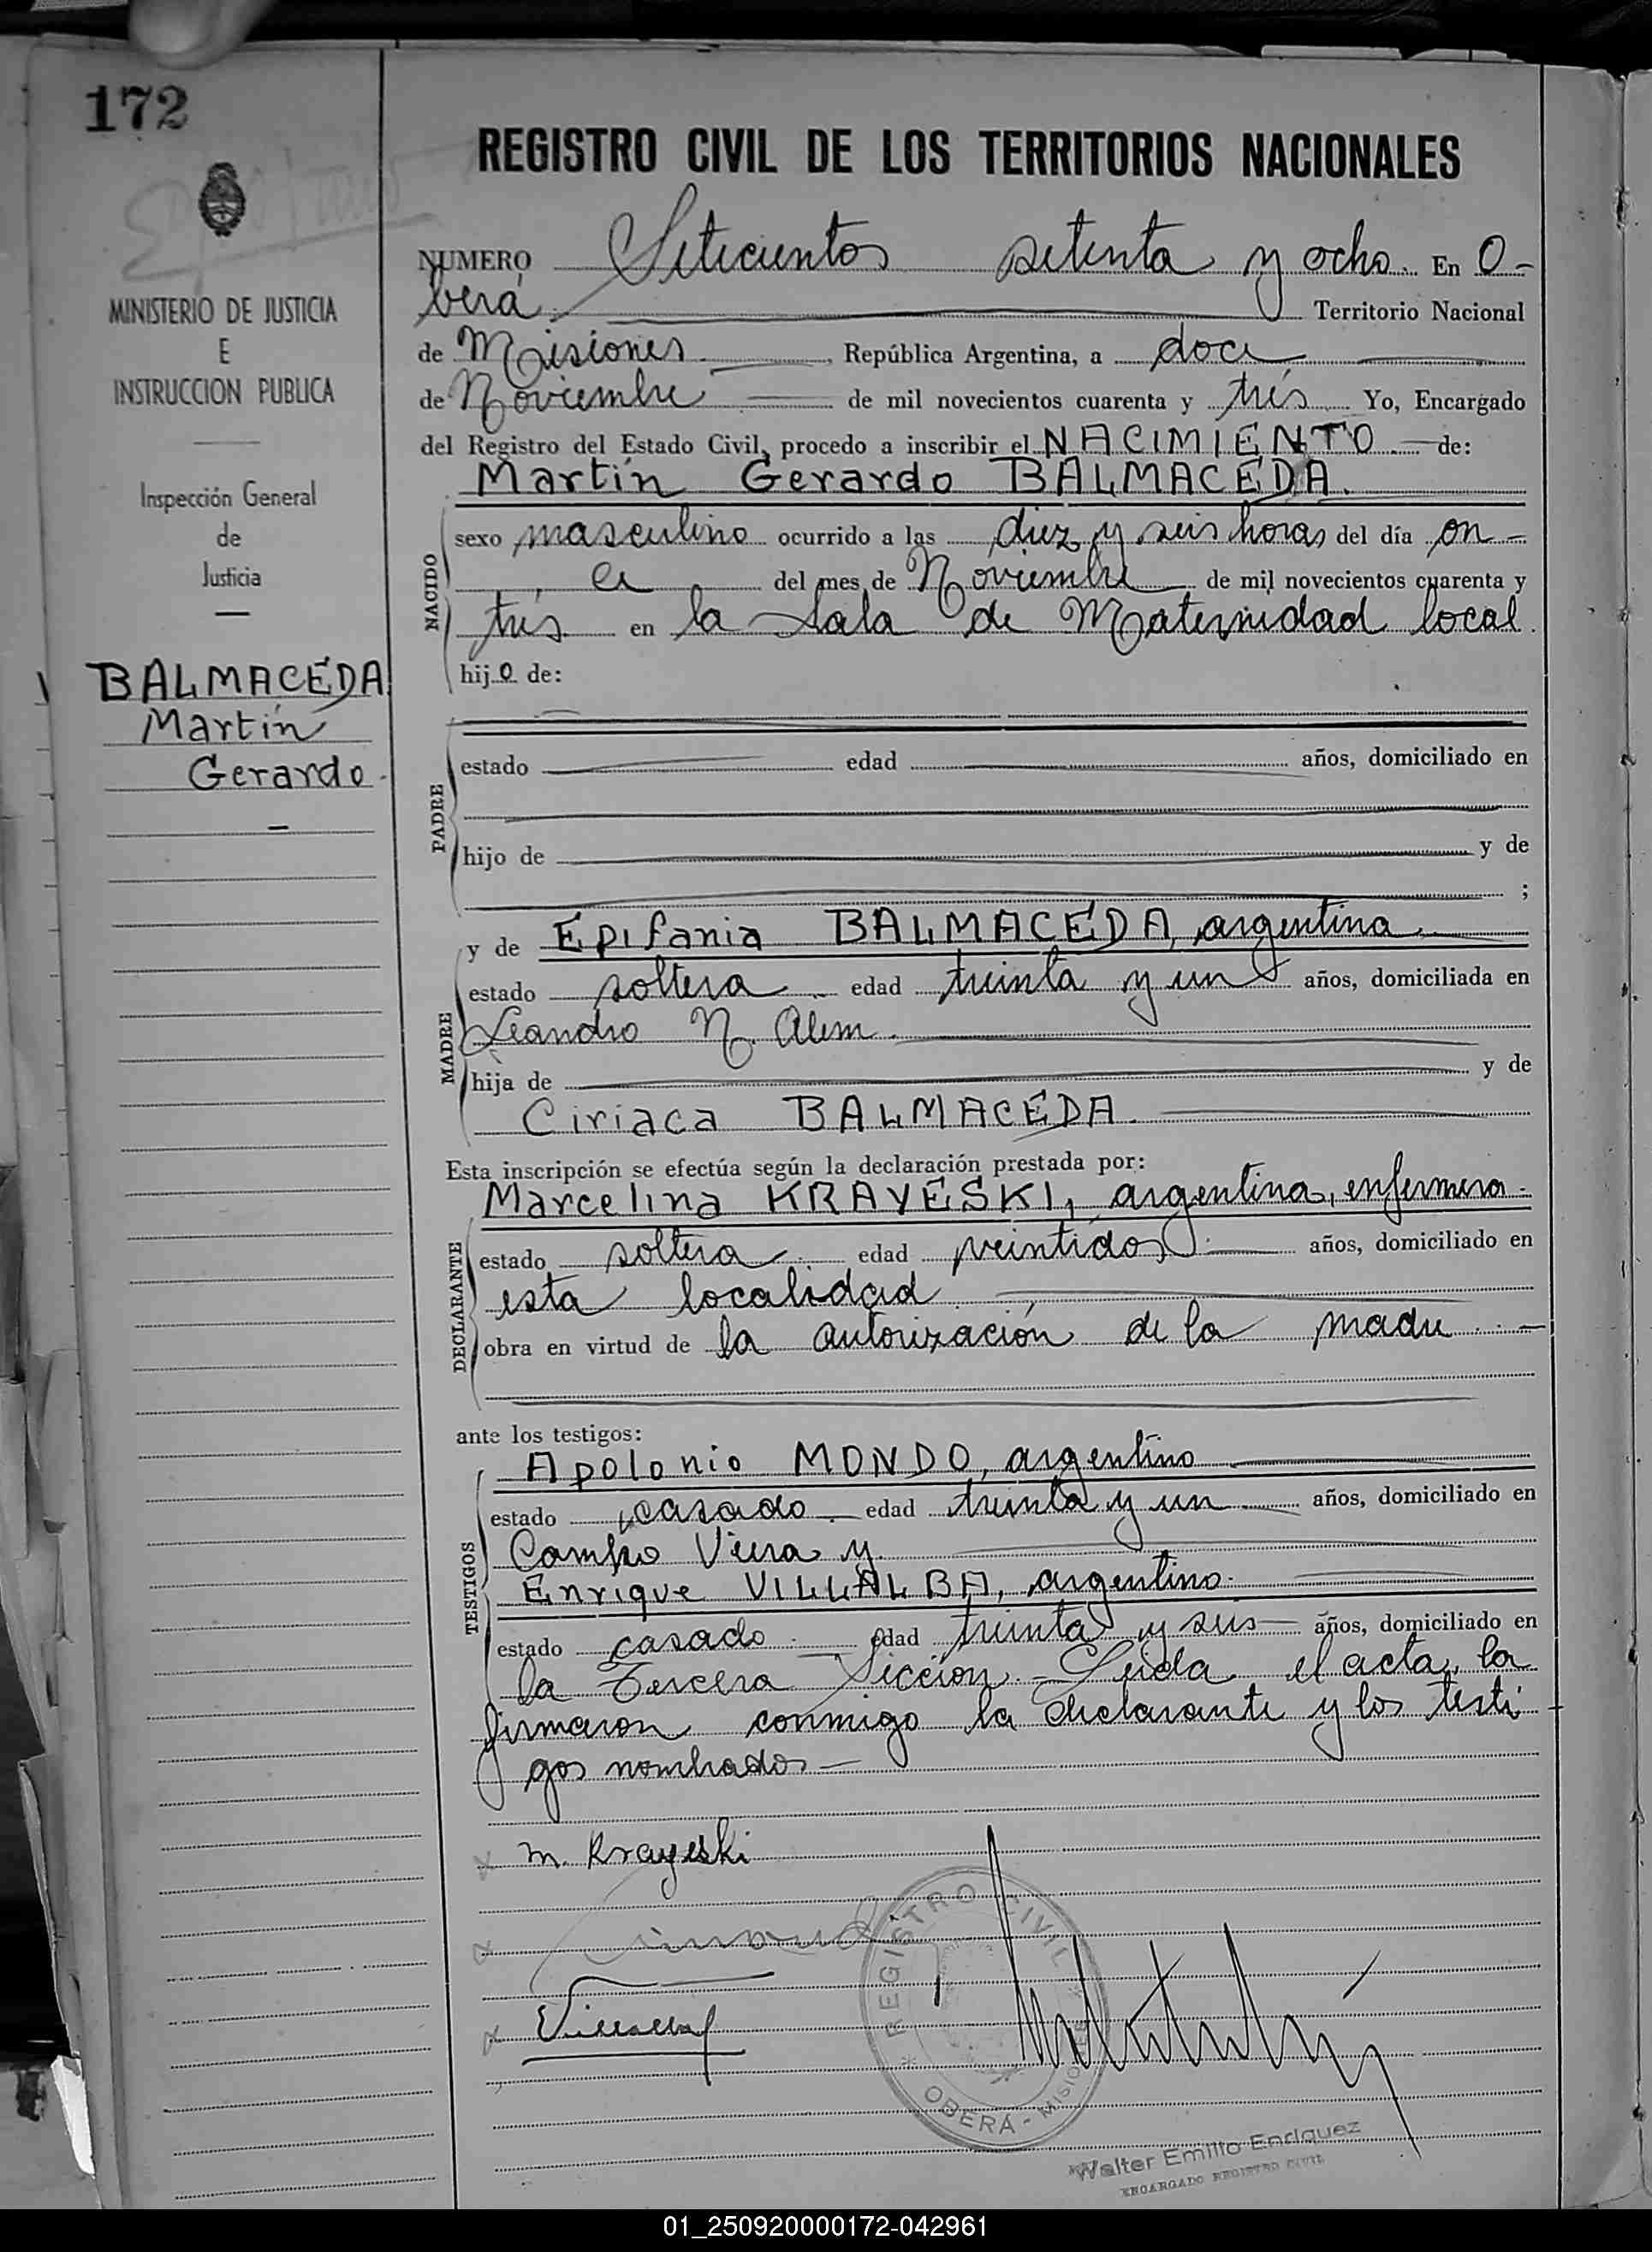 172
REGISTRO CIVIL DE LOS TERRITORIOS NACIONALES
MINISTERIO DE JUSTICIA
E
INSTRUCCION PUBLICA
Inspección General
de
Justicia
BALMACEDA
Martín
Gerardo
NUMERO Seteicientos setenta y ocho. En O-
berá Territorio Nacional
de Misiones. , República Argentina, a doce
de Noviembre de mil novecientos cuarenta y trés Yo, Encargado
del Registro del Estado Civil, procedo a inscribir el NACIMIENTO. de:
Martín Gerardo BALMACEDA.
NACIDO
sexo masculino ocurrido a las diez y seis horas del día on-
ce del mes de Noviembre de mil novecientos cuarenta y
trés en la Sala de Maternidad local.
hijo de:
PADRE
estado edad años, domiciliado en
hijo de y de
;
MADRE
y de Epifania BALMACEDA, argentina
estado soltera edad treinta y un años, domiciliada en
Leandro N. Alem.
hija de y de
Ciriaca BALMACEDA.
Esta inscripción se efectúa según la declaración prestada por:
DECLARANTE
Marcelina KRAYESKI, argentina, enfermera-
estado soltera edad veintidos años, domiciliado en
esta localidad
obra en virtud de la autorización de la madre
ante los testigos:
TESTIGOS
Apolonio MONDO, argentino
estado casado edad treinta y un años, domiciliado en
Campo Viera y
Enrique VILLALBA, argentino.
estado casado edad treinta y seis años, domiciliado en
la Tercera Sección.- Leida el acta, la
firmaron conmigo la declarante y los testi
gos nombrados-
M. Krayeski
REGISTRO CIVIL
OBERÁ - MISIONES
Walter Emilio Enriquez
ENCARGADO REGISTRO CIVIL
01_250920000172-042961